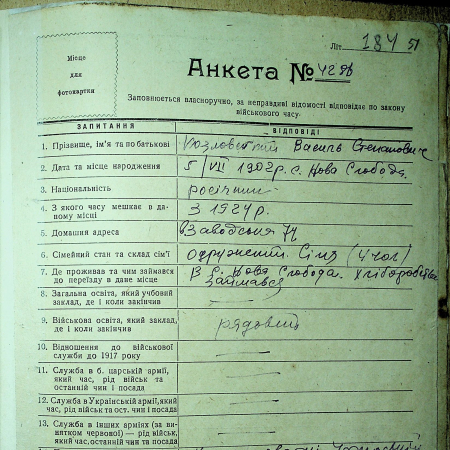 Літ. 184 51
Місце
для
фотокартки
Анкета №
Заповнюється власноручно, за неправдиві відомості відповідає по закону
військового часу.
ЗАПИТАННЯ ВІДПОВІДІ
1. Прізвище, ім'я та по батькові Козловский Василь Степанович
2. Дата та місце народження 5/VII 1902р. с. Нова Слобода.
3. Національність
4. З якого часу мешкає в даному місці З 1924 р.
5. Домашня адреса Заводская
6. Сімейний стан та склад сім'ї Сімя (4 чол)
7. Де проживав та чим займався до переїзду в дане місце В с. Нова Слобода. Хліборобством
займався
8. Загальна освіта, який учбовий
заклад, де і коли закінчив
9. Військова освіта, який заклад,
де і коли закінчив рядовий
10. Відношення до військової
служби до 1917 року
11. Служба в б. царській армії,
який час, рід військ та
останній чин і посада
12. Служба в Українській армії, який
час, рід військ та ост. чин і посада
13. Служба в інших арміях (за ви-
нятком червоної) — рід військ,
який час, останній чин та посада